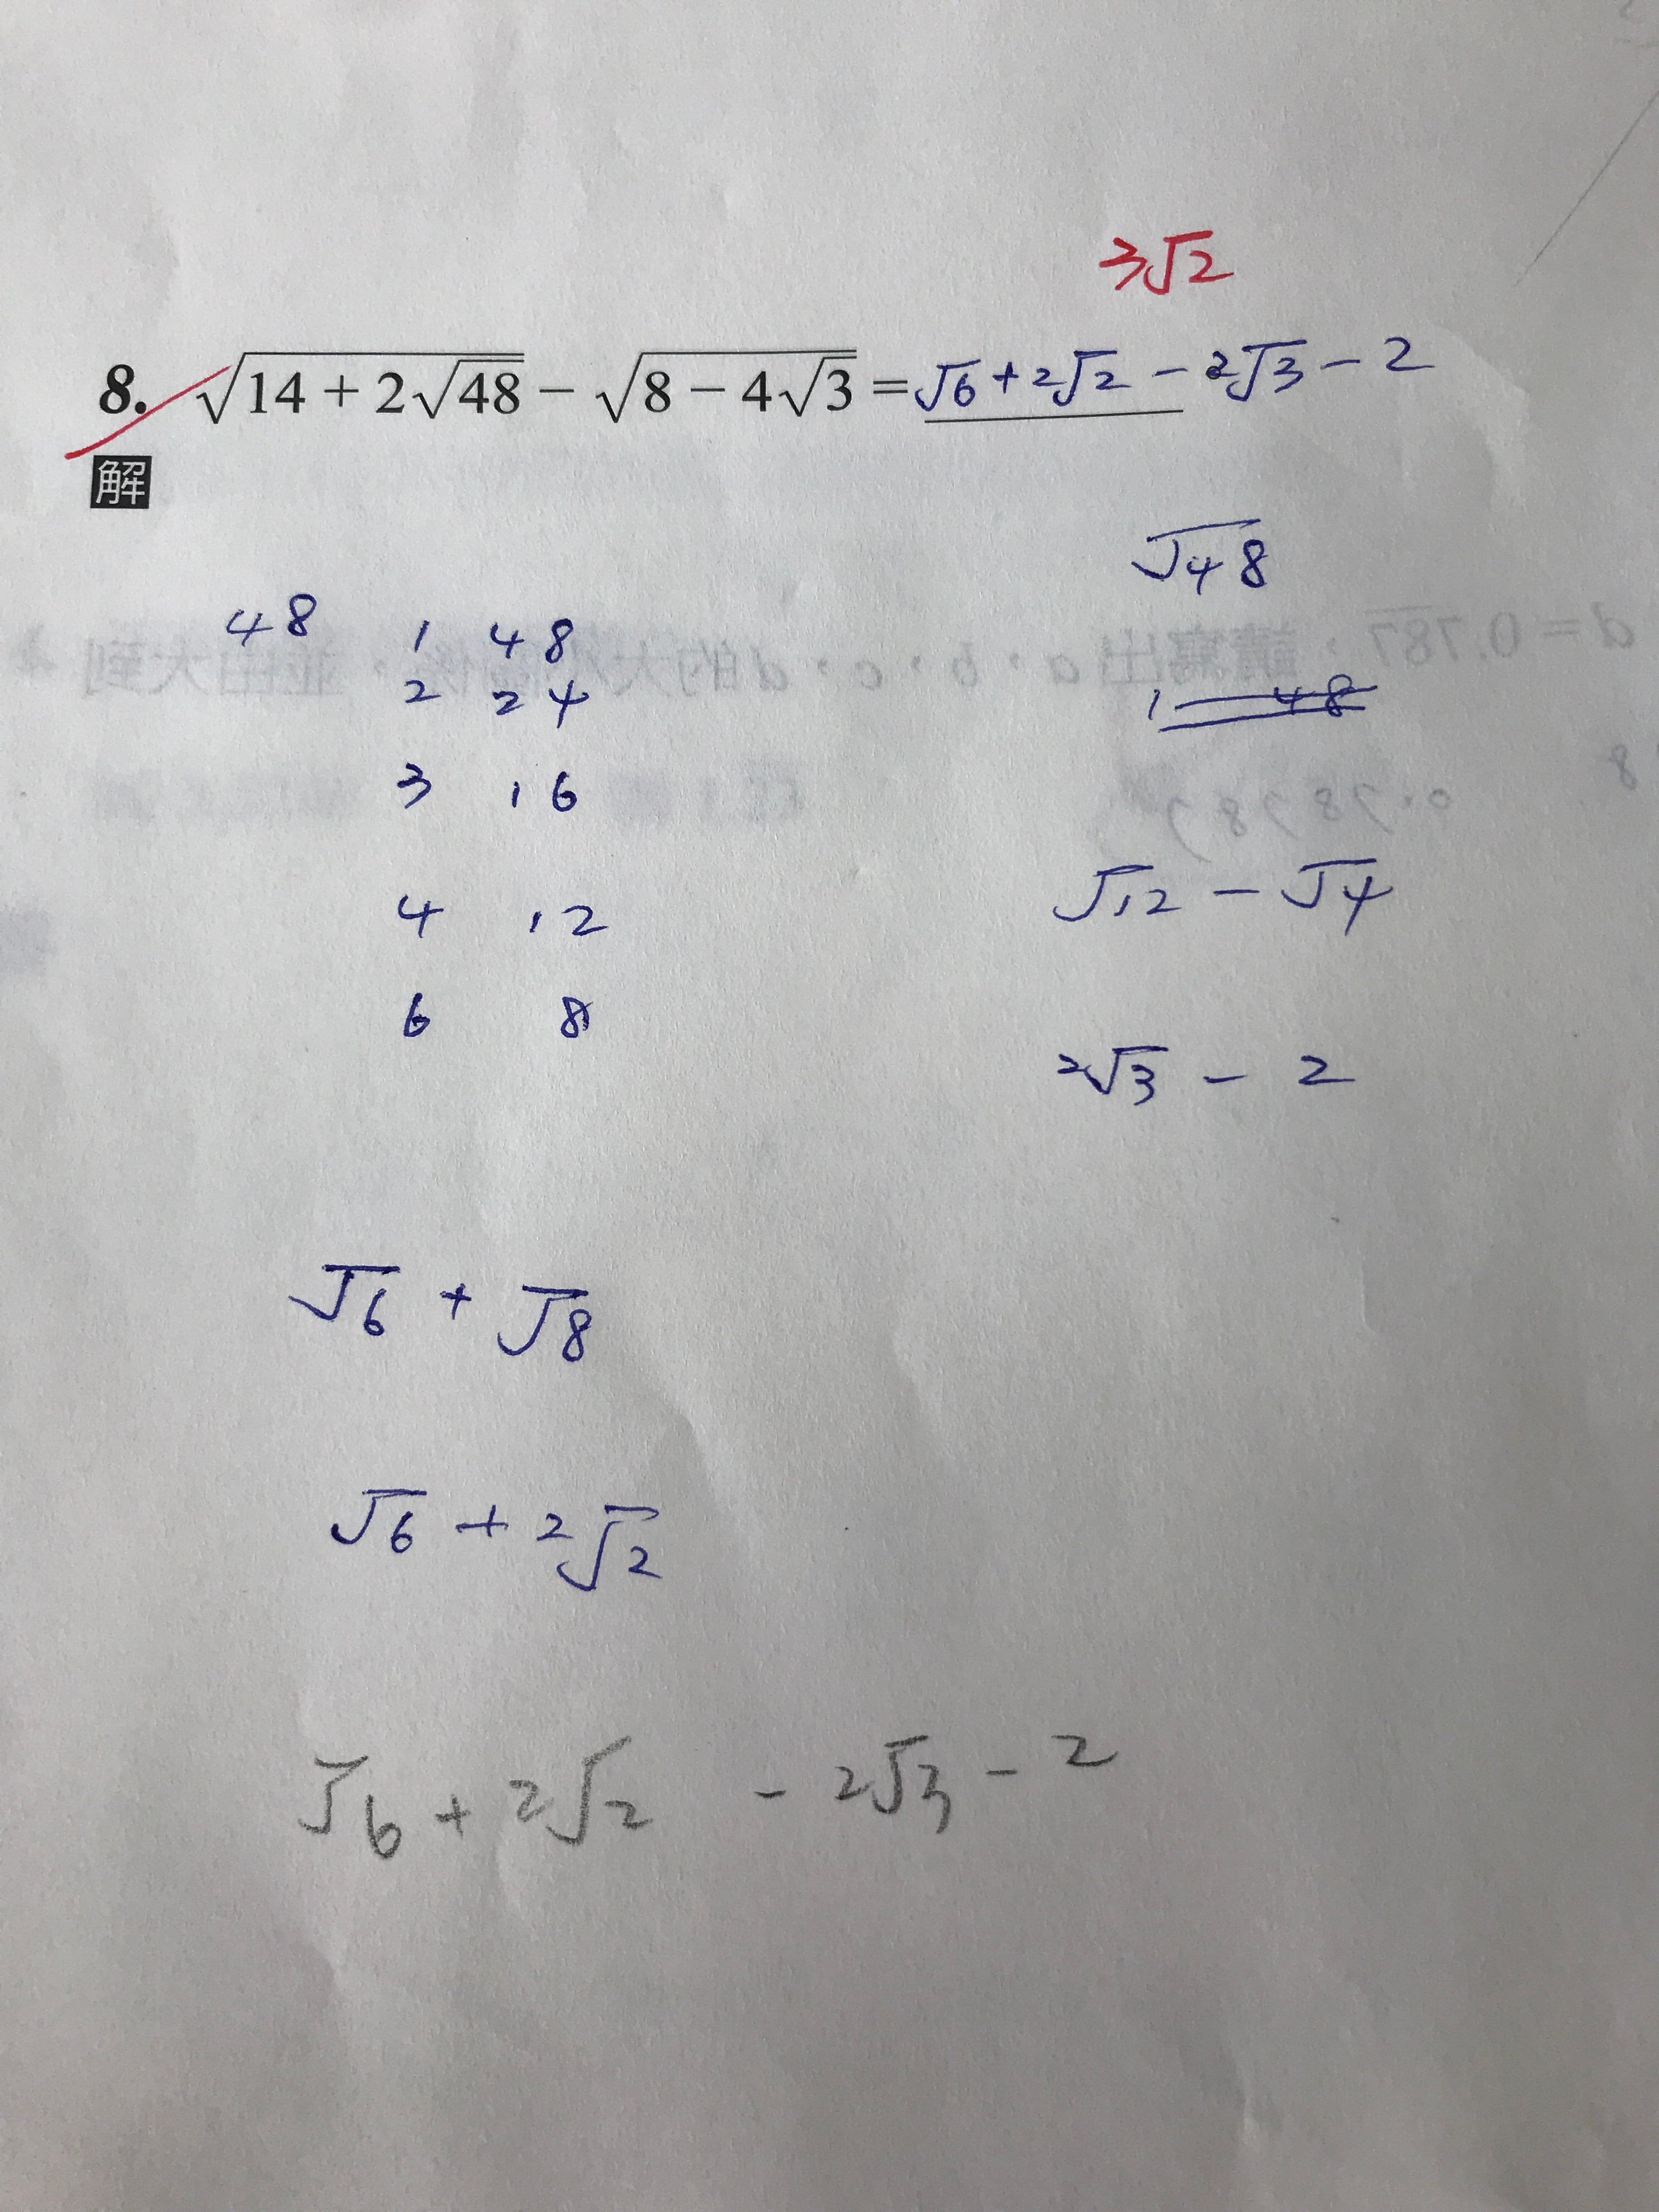 3√2
8. √(14 + 2√48) − √(8 − 4√3) = √6 + 2√2 − 2√3 − 2
解
√48
48 1 48
2 24
1 48
3 16
√12 − √4
4 12
6 8
2√3 − 2
√6 + √8
√6 + 2√2
√6 + 2√2 − 2√3 − 2